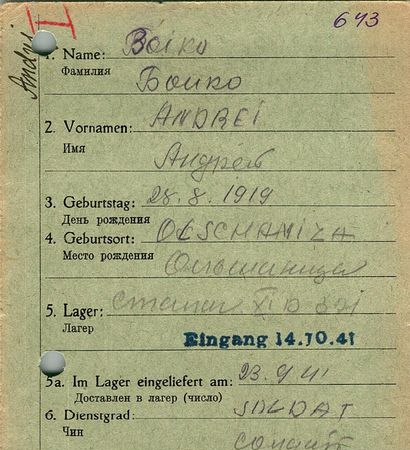 643
I
1. Name: Boiko
Фамилия
Бойко
2. Vornamen: ANDREI
Имя
Андрей
3. Geburtstag: 28.8.1919
День рождения
4. Geburtsort: OLSCHANIZA
Место рождения
Ольшаница
5. Lager: XI D 321
Лагерь
Eingang 14.10.41
5a. Im Lager eingeliefert am: 23.9.41
Доставлен в лагерь (число)
6. Dienstgrad: SOLDAT
Чин
солдат